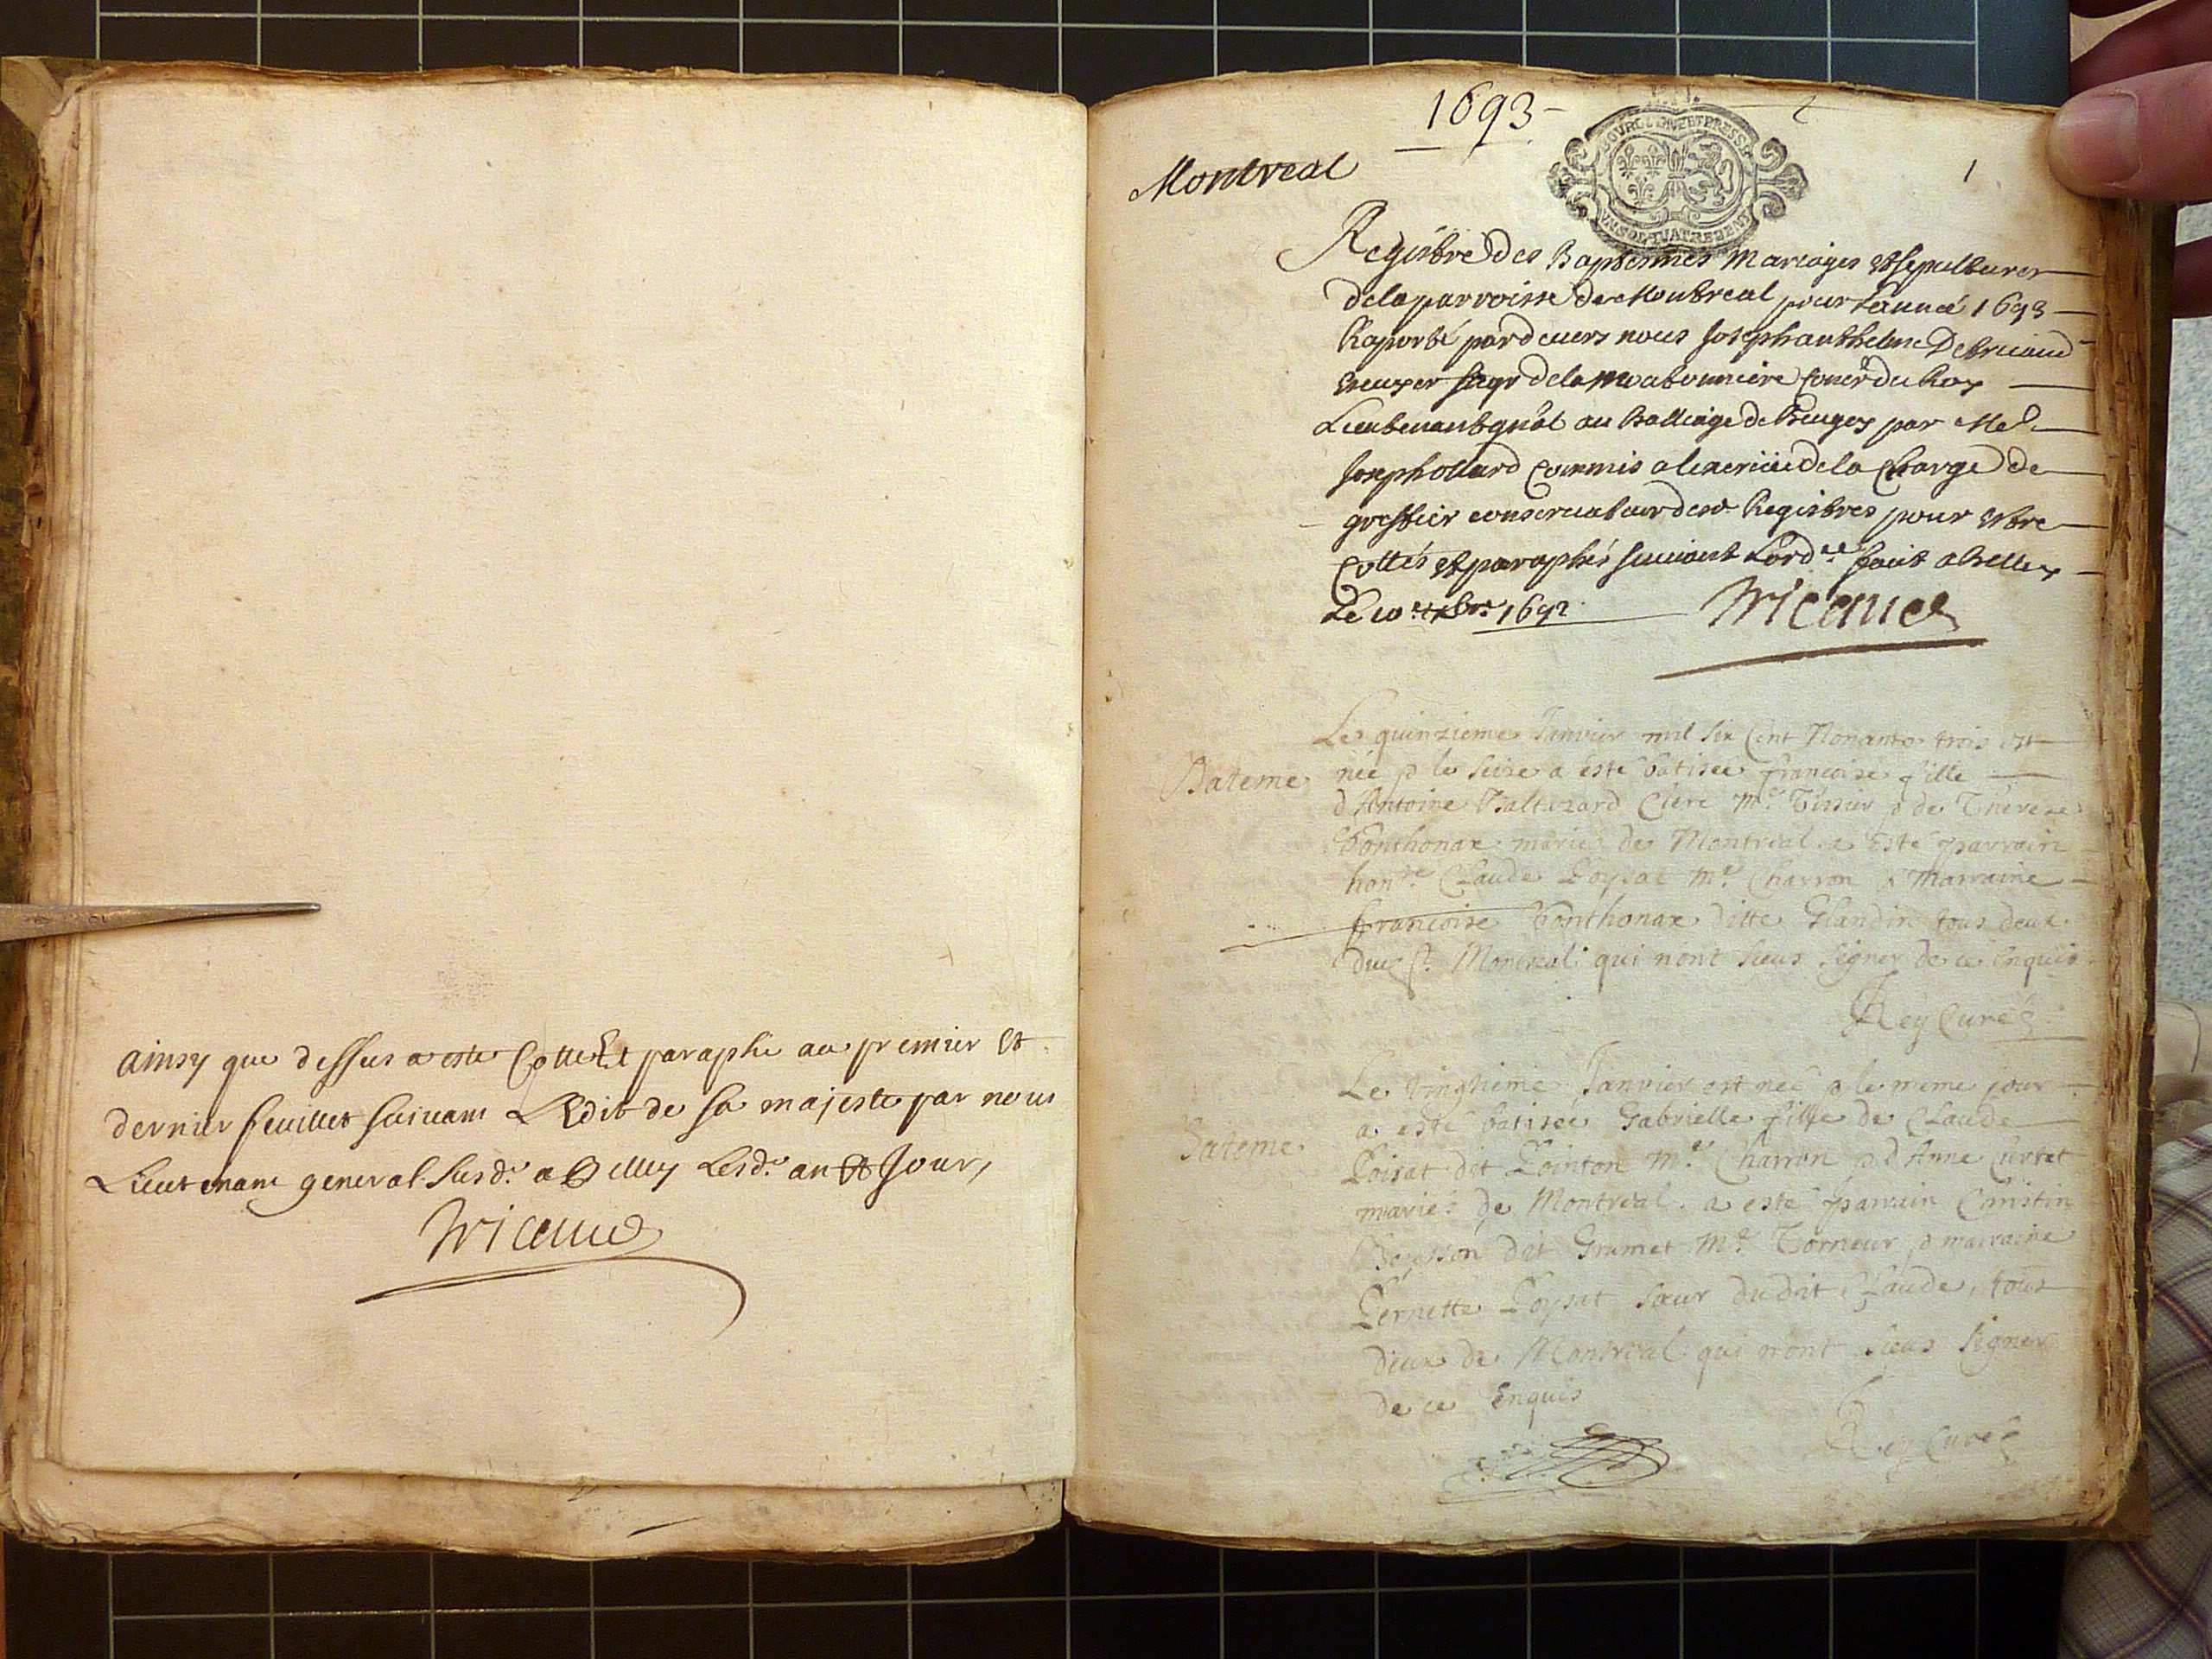 ainsy que dessus a este Cotté Et paraphé au premier Et
dernier feuillet suivant L'Edit de sa majesté par nous
Lieutenant general susd.t a Belley Lesd.t an Et Jour,
Tricaud
1693
Montreal
1
BOURGOGNE ET BRESSE
UN SOL QUATRE DEN
Registre des Baptesmes Mariages et sepultures
de la parroisse de Montreal pour l'année 1693
Raporté pardevers nous Joseph anthelme De tricaud
seigr de la Con.er du Roy
Lieutenant gnāl au Balliage de Beugey par Me
Joseph commis a lexercice de la Charge de
greffier conservateur desd. Registres pour Estre
cottés et paraphés suivant Lord.ce fait a Belley
Le 10.e 1692
Tricaud
Le quinzieme Janvier mil six Cent Nonante trois est
Bateme
née & le seize a esté batisée francoise fille
d'Antoine Baltazard Clerc M.e Tissier & de Therese
Bonthonax mariés de Montreal a esté parrain
hon.re Claude Poysat M.e Charron & marraine
francoise Bonthonax ditte Glandin tous deux
dud.t Montreal qui n'ont sceus signer de ce Enquis
Rey Curé
Le vingtieme Janvier est née & le meme jour
Bateme
a esté batisée Gabrielle fille de Claude
Poisat dit Pointon M.e Charron & d'Anne Curtet
mariés de Montreal. a esté parrain Christin
dit Grumet M.e Torneur & marraine
Pernette Poysat sœur dudit Claude, tous
deux de Montreal qui n'ont sceus signer
de ce Enquis
Rey Curé